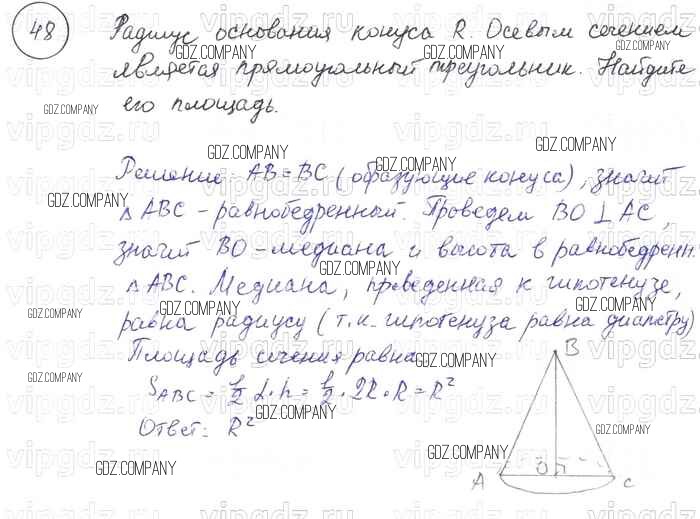 48 Радиус основания конуса R. Осевым сечением
является прямоугольный треугольник. Найдите
его площадь.
Решение: AB = BC (образующие конуса), значит
△ ABC - равнобедренный. Проведем BO ⊥ AC,
значит BO - медиана и высота в равнобедренн.
△ ABC. Медиана, проведенная к гипотенузе,
равна радиусу (т.к. гипотенуза равна диаметру)
Площадь сечения равна
S ABC = 1/2 d · h = 1/2 · 2R · R = R²
Ответ: R²
B
A O C
GDZ.COMPANY
vipgdz.ru